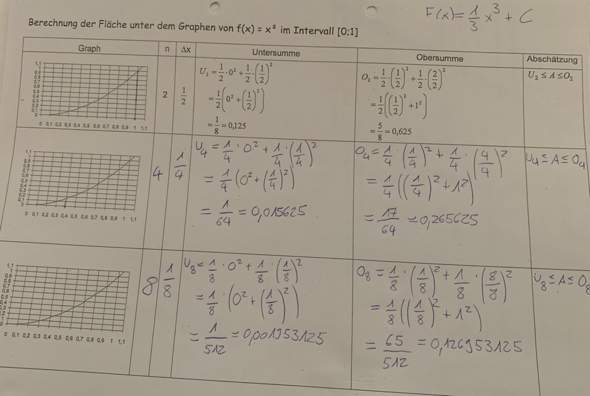 F(x) = 1/3 x³ + C
Berechnung der Fläche unter dem Graphen von f(x) = x² im Intervall [0;1]
Graph n Δx Untersumme Obersumme Abschätzung
1,1
1
0,9
0,8
0,7
0,6
0,5
0,4
0,3
0,2
0,1
0
0 0,1 0,2 0,3 0,4 0,5 0,6 0,7 0,8 0,9 1 1,1
2
1/2
U₂ = 1/2 · 0² + 1/2 · (1/2)²
= 1/2 (0² + (1/2)²)
= 1/8 = 0,125
O₂ = 1/2 · (1/2)² + 1/2 · (2/2)²
= 1/2 ((1/2)² + 1²)
= 5/8 = 0,625
U₂ ≤ A ≤ O₂
1,1
1
0,9
0,8
0,7
0,6
0,5
0,4
0,3
0,2
0,1
0
0 0,1 0,2 0,3 0,4 0,5 0,6 0,7 0,8 0,9 1 1,1
4
1/4
U₄ = 1/4 · 0² + 1/4 · (1/4)²
= 1/4 (0² + (1/4)²)
= 1/64 = 0,015625
O₄ = 1/4 · (1/4)² + 1/4 · (4/4)²
= 1/4 ((1/4)² + 1²)
= 17/64 = 0,265625
U₄ ≤ A ≤ O₄
1,1
1
0,9
0,8
0,7
0,6
0,5
0,4
0,3
0,2
0,1
0
0 0,1 0,2 0,3 0,4 0,5 0,6 0,7 0,8 0,9 1 1,1
8
1/8
U₈ = 1/8 · 0² + 1/8 · (1/8)²
= 1/8 · (0² + (1/8)²)
= 1/512 = 0,001953125
O₈ = 1/8 · (1/8)² + 1/8 · (8/8)²
= 1/8 ((1/8)² + 1²)
= 65/512 = 0,126953125
U₈ ≤ A ≤ O₈